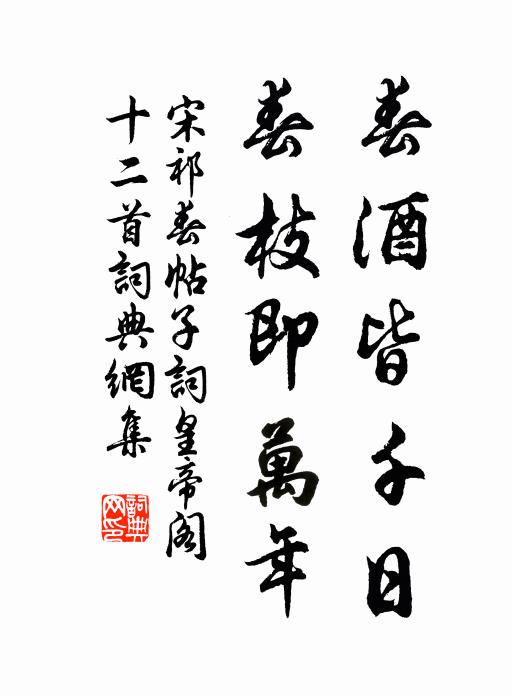 春酒皆千日
春枝即萬年
宋祁春帖子詞皇帝阁
十二首詞典網集
詞典
网印